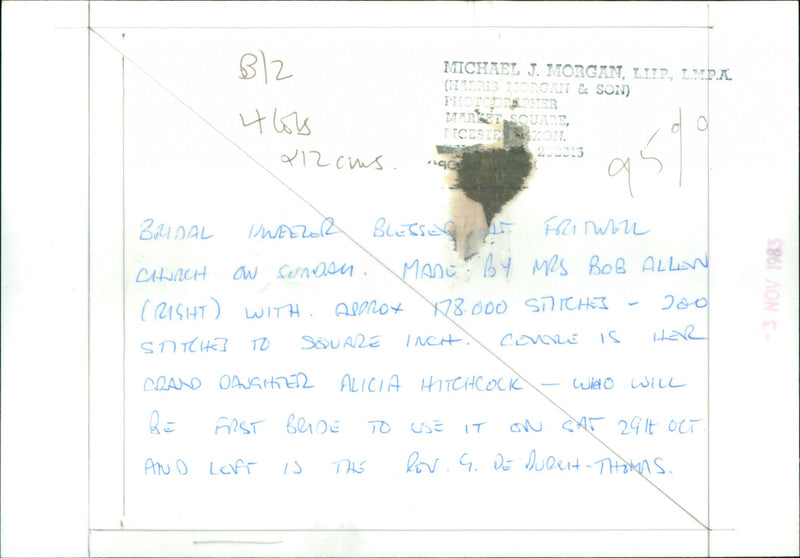 B/2
4 cols
x12 cms.
MICHAEL J. MORGAN, L.I.I.P., L.M.P.A.
(HARRIS MORGAN & SON)
PHOTOGRAPHER
MARKET SQUARE,
BICESTER OXON.
95%
BRIDAL KNEELER BLESSED AT FRITWELL
CHURCH ON SUNDAY. MADE BY MRS BOB ALLEN
(RIGHT) WITH. APPROX 178.000 STITCHES - 200
STITCHES TO SQUARE INCH. CENTRE IS HER
GRAND DAUGHTER ALICIA HITCHCOCK - WHO WILL
BE FIRST BRIDE TO USE IT ON SAT 29th OCT.
AND LEFT IS THE REV. G. DE BURGH-THOMAS.
-3 NOV 1983